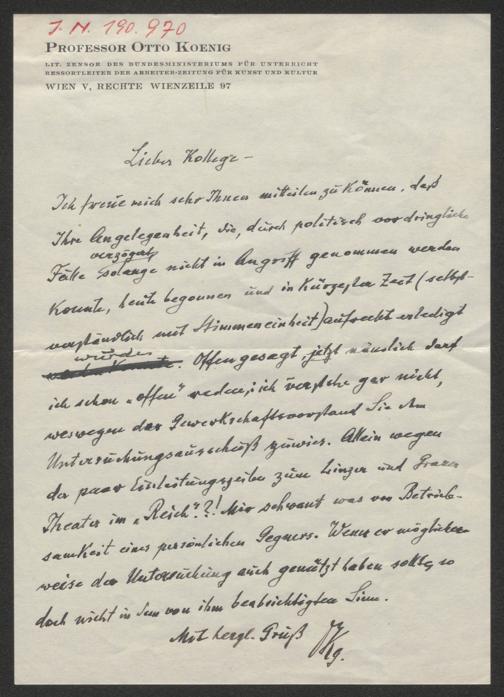 J. N. 190.970
PROFESSOR OTTO KOENIG
LIT. ZENSOR DES BUNDESMINISTERIUMS FÜR UNTERRICHT
RESSORTLEITER DER ARBEITER-ZEITUNG FÜR KUNST UND KULTUR
WIEN V, RECHTE WIENZEILE 97
Lieber Kollege –
Ich freue mich sehr Ihnen mitteilen zu können, daß
Ihre Angelegenheit, die, durch politisch vordringliche
verzögert,
Fälle solange nicht in Angriff genommen werden
konnte, heute begonnen und in kürzester Zeit (selbst-
verständlich mit Stimmeneinheit) aufrecht erledigt
wurde.
Offen gesagt, jetzt nämlich darf
ich schon „offen" reden, ich verstehe gar nicht,
weswegen der Gewerkschaftsvorstand Sie dem
Untersuchungsausschuß zuwies. Allein wegen
der paar Einleitungszeilen zum Linzer und Grazer
Theater im „Reich"?! Mir schwant was von Betrieb-
samkeit eines persönlichen Gegners. Wenn er möglicher-
weise der Untersuchung auch genützt haben sollte, so
doch nicht in dem von ihm beabsichtigten Sinne.
Mit herzl. Gruß Kg.